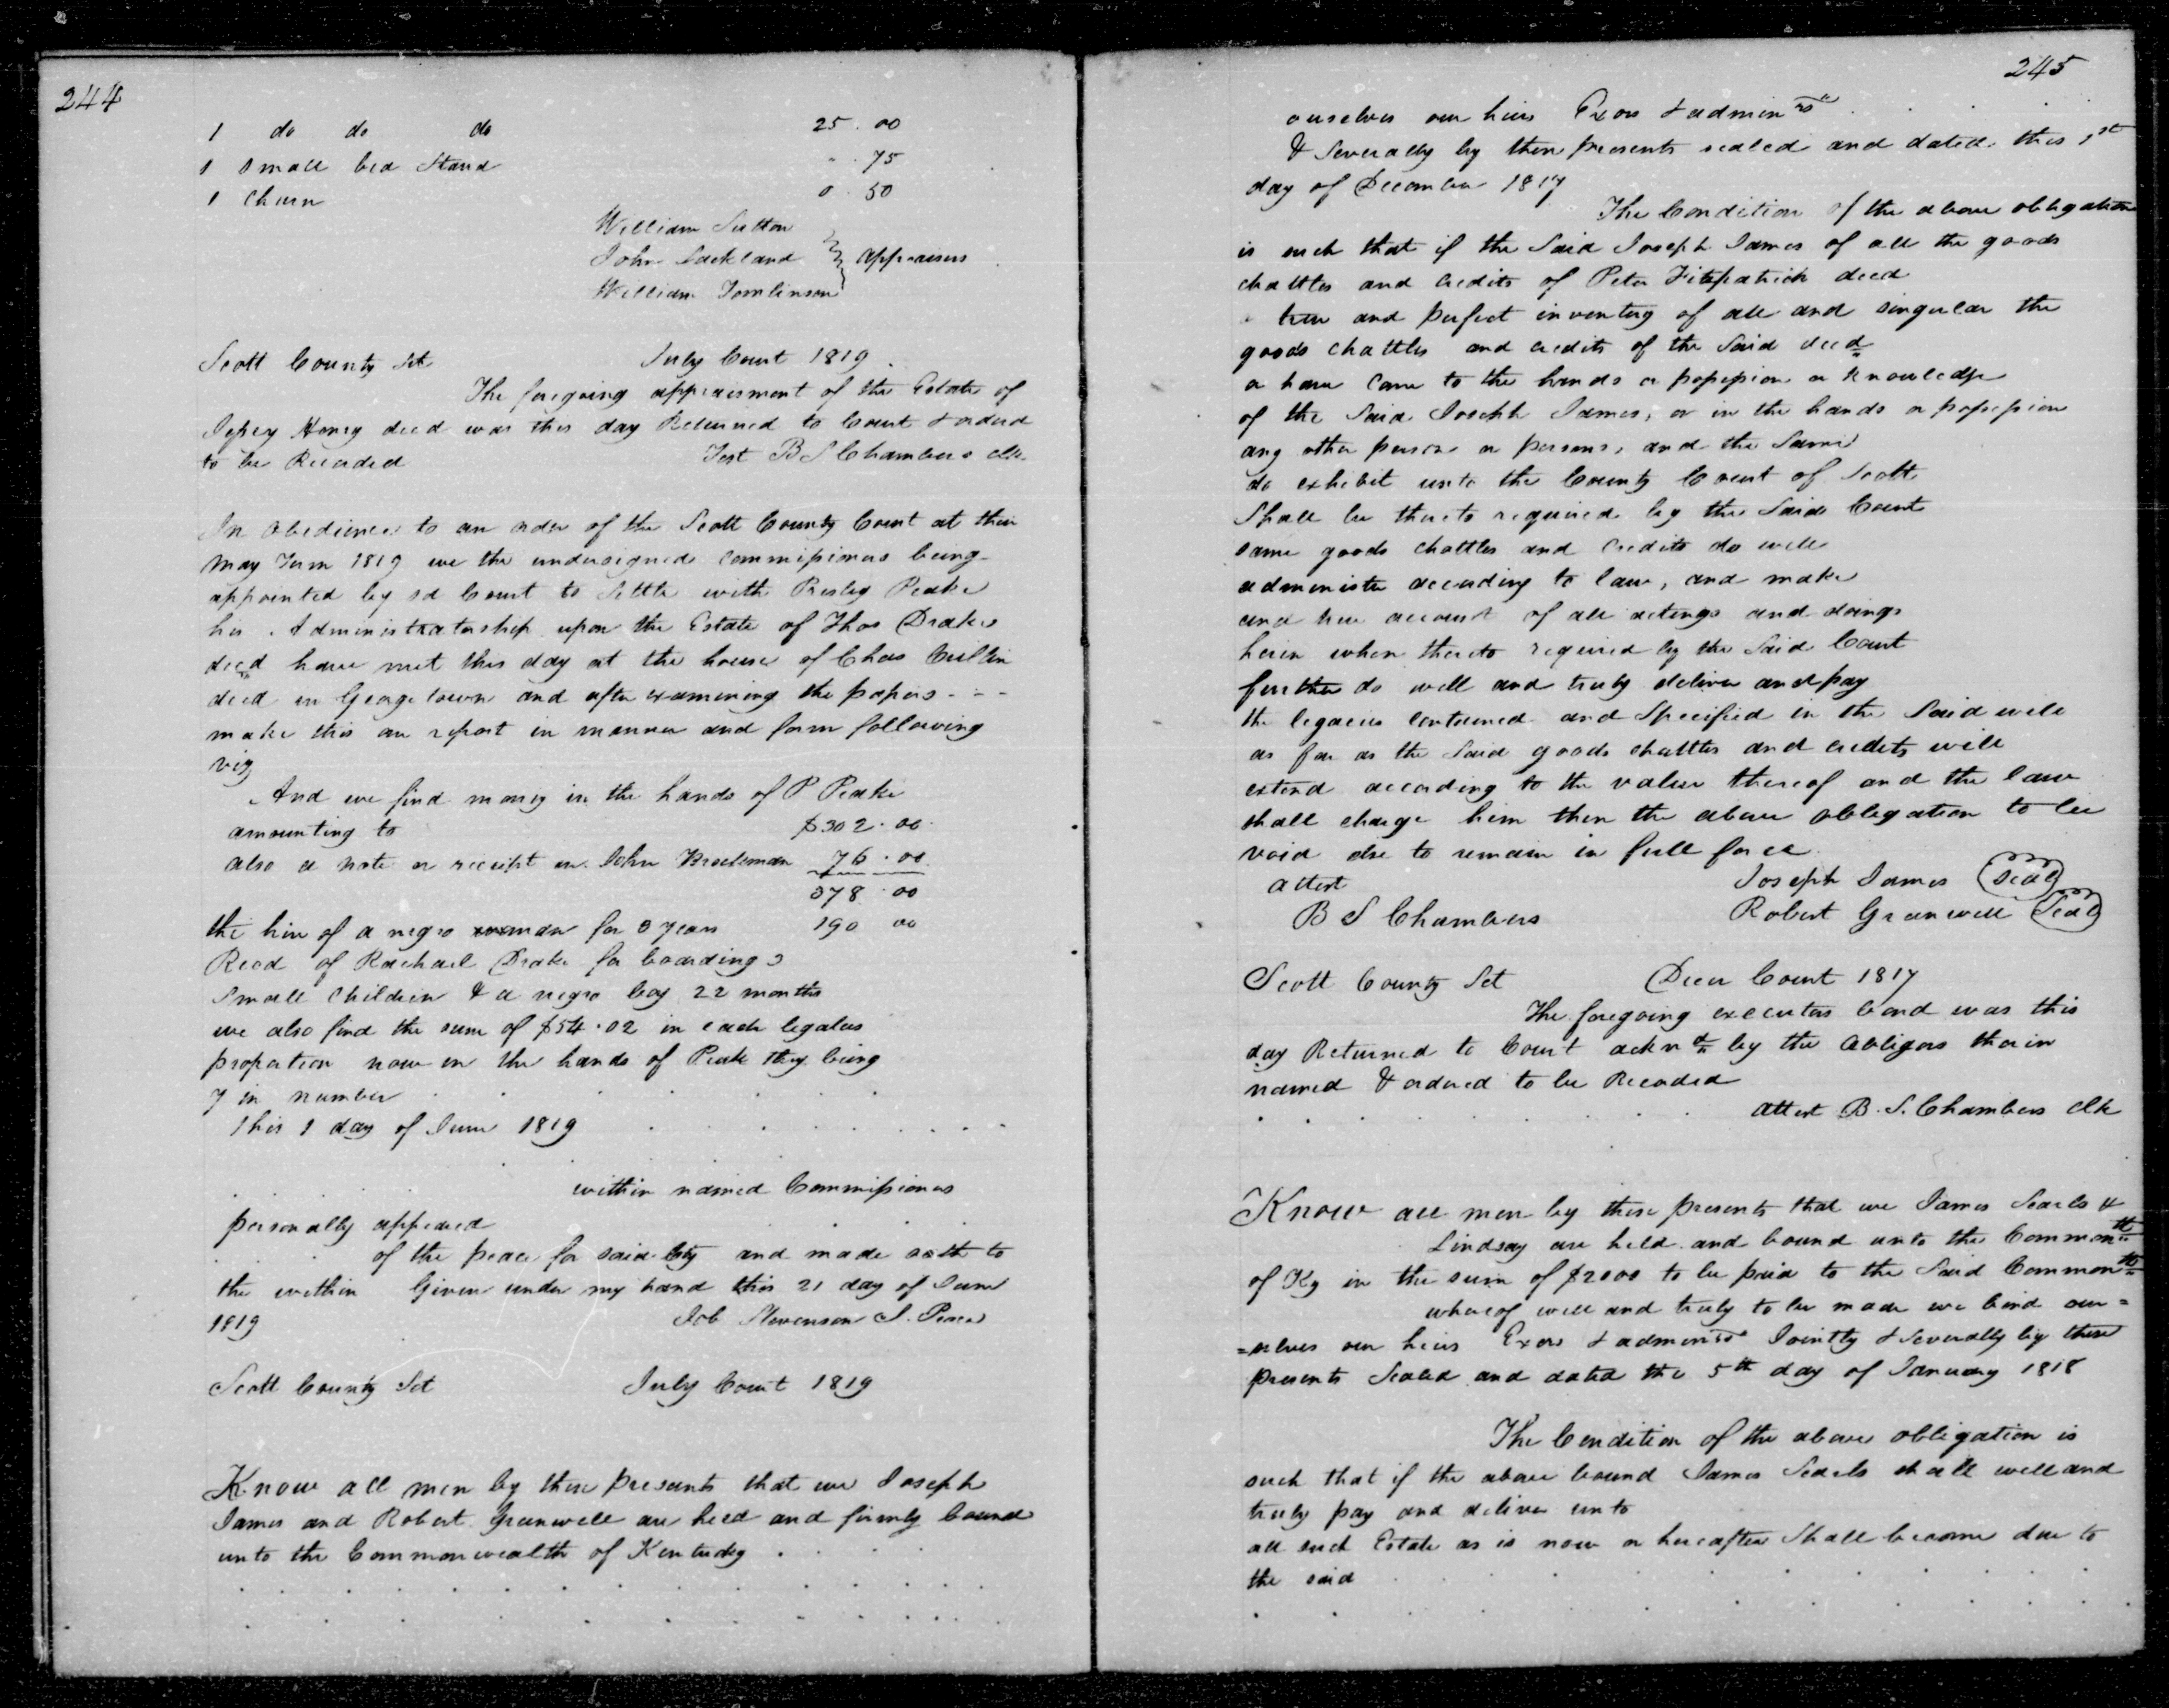 244
1 do do do 25.00
1 Small bed Stand " 75
1 Churn 0.50
William Sutton
John Lackland } appraisers
William Tomlinson
Scott County Sct July Court 1819
The foregoing appraisment of the Estate of
decd was this day Returned to Court & orderd
to be Recorded Test B S Chambers clk
In obedience to an order of the Scott County Court at their
May Term 1819 we the undersigned commissioners being
appointed by sd Court to Settle with Presley Peake
his Administratorship upon the Estate of Thos Drake
decd have met this day at the house of Chas
decd in George town and after examining the papers - - -
make this our report in manner and form following
viz
And we find money in the hands of P Peake
amounting to $302.00
also a note or receipt on John 76.00
378.00
the hire of a negro woman for 3 years 190 00
Recd of Rachael Drake for boarding 3
Small Children & a negro boy 22 months
we also find the sum of $54.02 in each legatees
propotion now in the hands of Peake they being
7 in number
This 1 day of June 1819
within named Commissioners
personally appeared
of the peace for said Cty and made oath to
the within Given under my hand this 21 day of June
1819 Job Stevenson J. Peace
Scott County Sct July Court 1819
Know all men by these presents that we Joseph
James and Robert Greenwell are held and firmly bound
unto the Commonwealth of Kentucky
245
ourselves our heirs Exors & adminrs
& Severally by these presents sealed and dated this 1st
day of December 1817
The Condition of the above obligation
is such that if the Said Joseph James of all the goods
chattles and credits of Peter Fitzpatrick decd
a true and perfect inventory of all and singular the
goods chattles and credits of the Said decd
or have Came to the hands or possession or Knowledge
of the Said Joseph James, or in the hands or possession
any other person or persons, and the Same
do exhibit unto the County Court of Scott
Shall be thereto required by the Said Court
same goods chattles and Credits do well
administer according to law, and make
and true account of all actings and doings
herein when thereto required by the Said Court
further do well and truly deliver and pay
the legacies contained and Specified in the Said will
as far as the Said goods chattles and credits will
extend according to the value thereof and the law
shall charge him then the above obligation to be
void else to remain in full force
attest Joseph James Seal
B S Chambers Robert Greenwell Seal
Scott County Sct Decr Court 1817
The foregoing executors bond was this
day Returned to Court acknd by the Obligors therein
named & ordered to be Recorded
attest B. S. Chambers clk
Know all men by these presents that we James Searls &
Lindsay are held and bound unto the Commonth
of Ky in the sum of $2000 to be paid to the Said Commonth
whereof well and truly to be made we bind our=
=selves our heirs Exors & adminrs Jointly & Severally by these
presents Sealed and dated the 5th day of January 1818
The Condition of the above obligation is
such that if the above bound James Searls shall well and
truly pay and deliver unto
all such Estate as is now or hereafter Shall become due to
the said